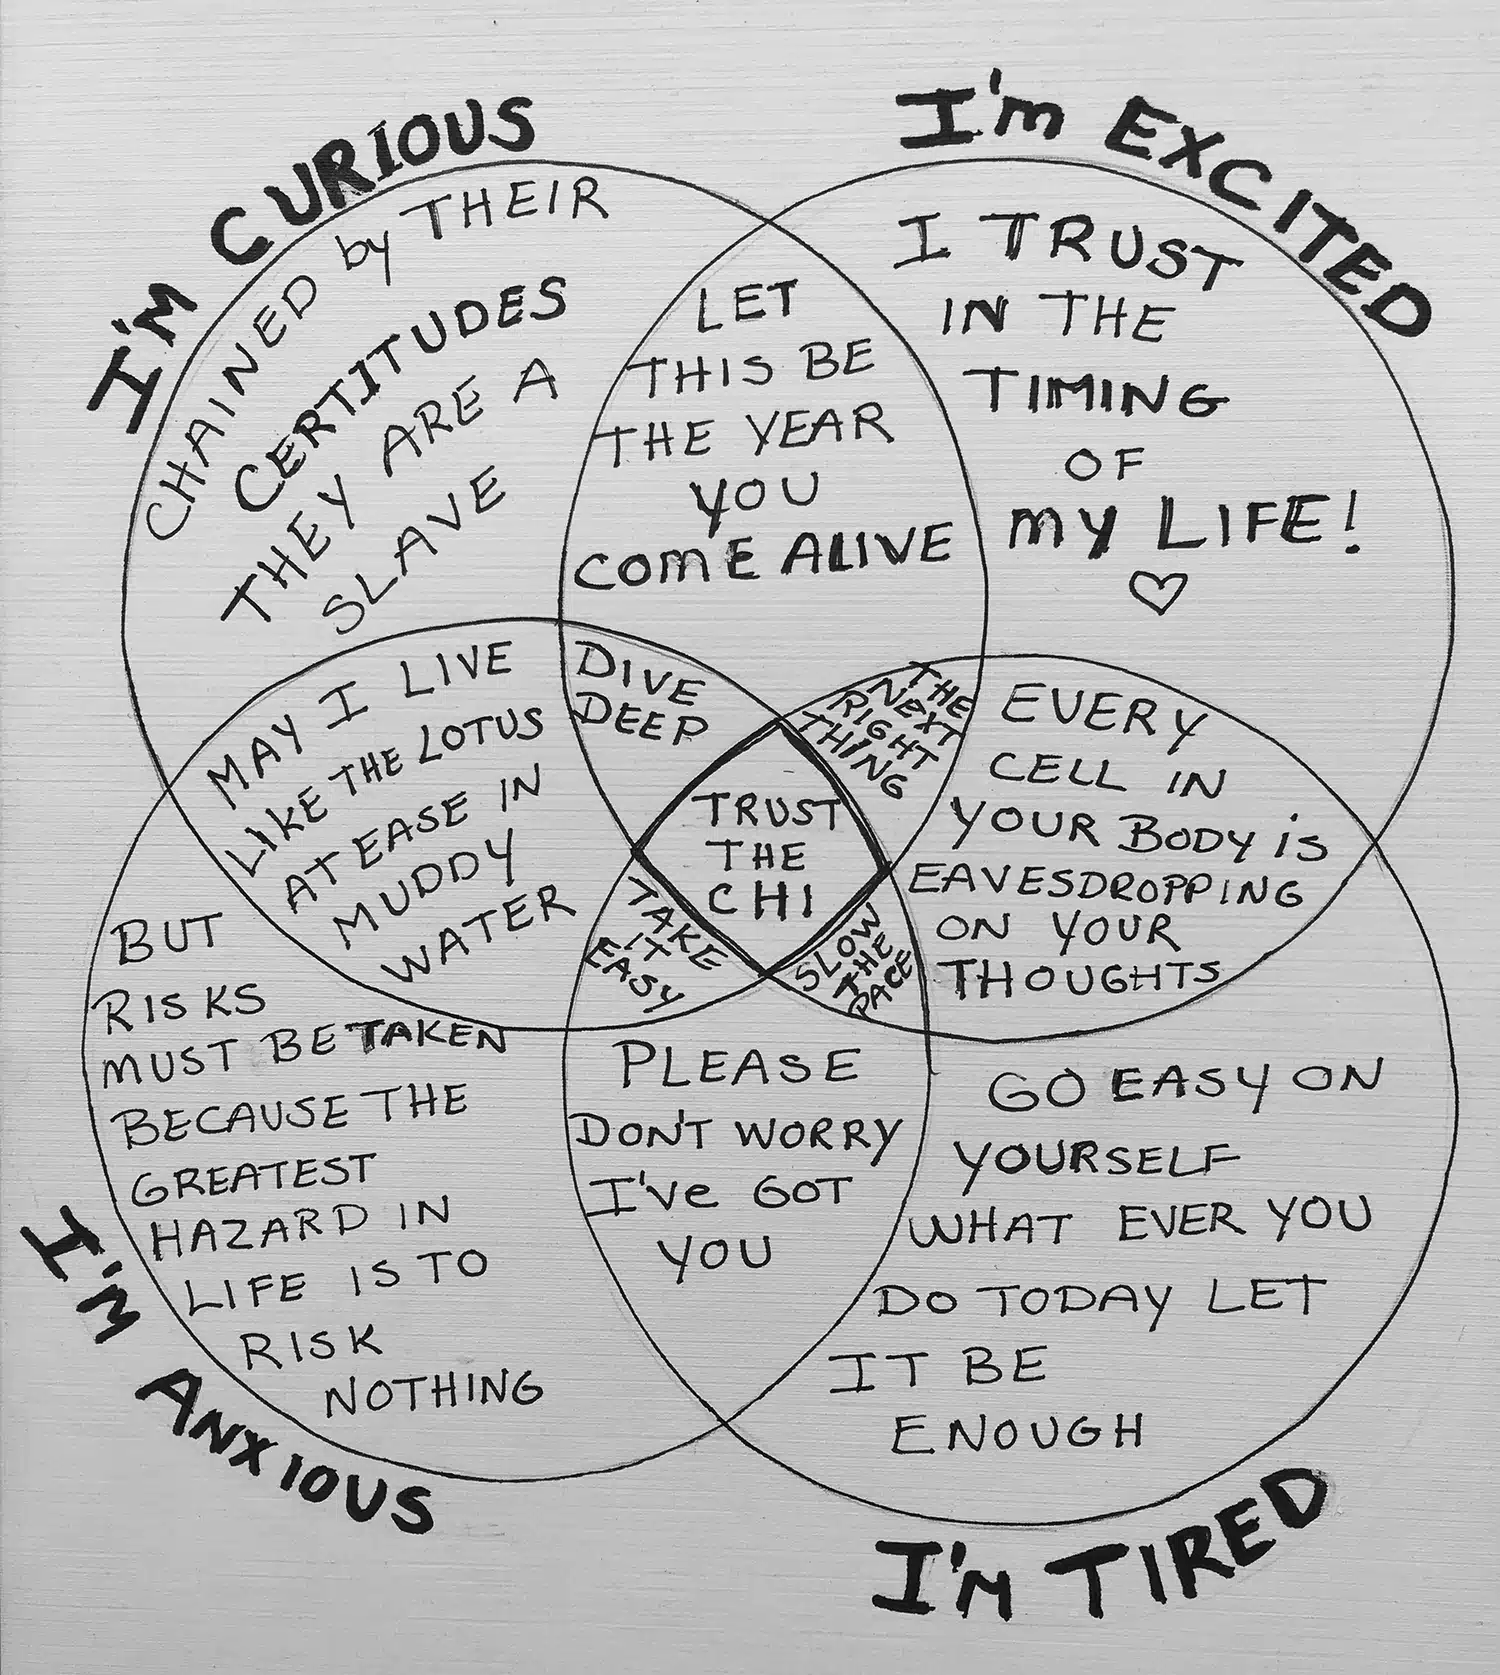 I'M CURIOUS
CHAINED by THEIR
CERTITUDES
THEY ARE A
SLAVE
I'm EXCITED
I TRUST
IN THE
TIMING
OF
my LIFE!
LET
THIS BE
THE YEAR
YOU
COmE ALIVE
MAY I LIVE
LIKE THE LOTUS
AT EASE IN
MUDDY
WATER
DIVE
DEEP
THE
NEXT
RIGHT
THING
EVERY
CELL IN
YOUR BODY iS
EAVESDROPPING
ON YOUR
THOUGHTS
TRUST
THE
CHI
TAKE
IT
EASY
SLOW
THE
PACE
I'M ANXIOUS
BUT
RISKS
MUST BE TAKEN
BECAUSE THE
GREATEST
HAZARD IN
LIFE IS TO
RISK
NOTHING
PLEASE
DON'T WORRY
I'Ve GOT
YOU
I'M TIRED
GO EASY ON
YOURSELF
WHAT EVER YOU
DO TODAY LET
IT BE
ENOUGH